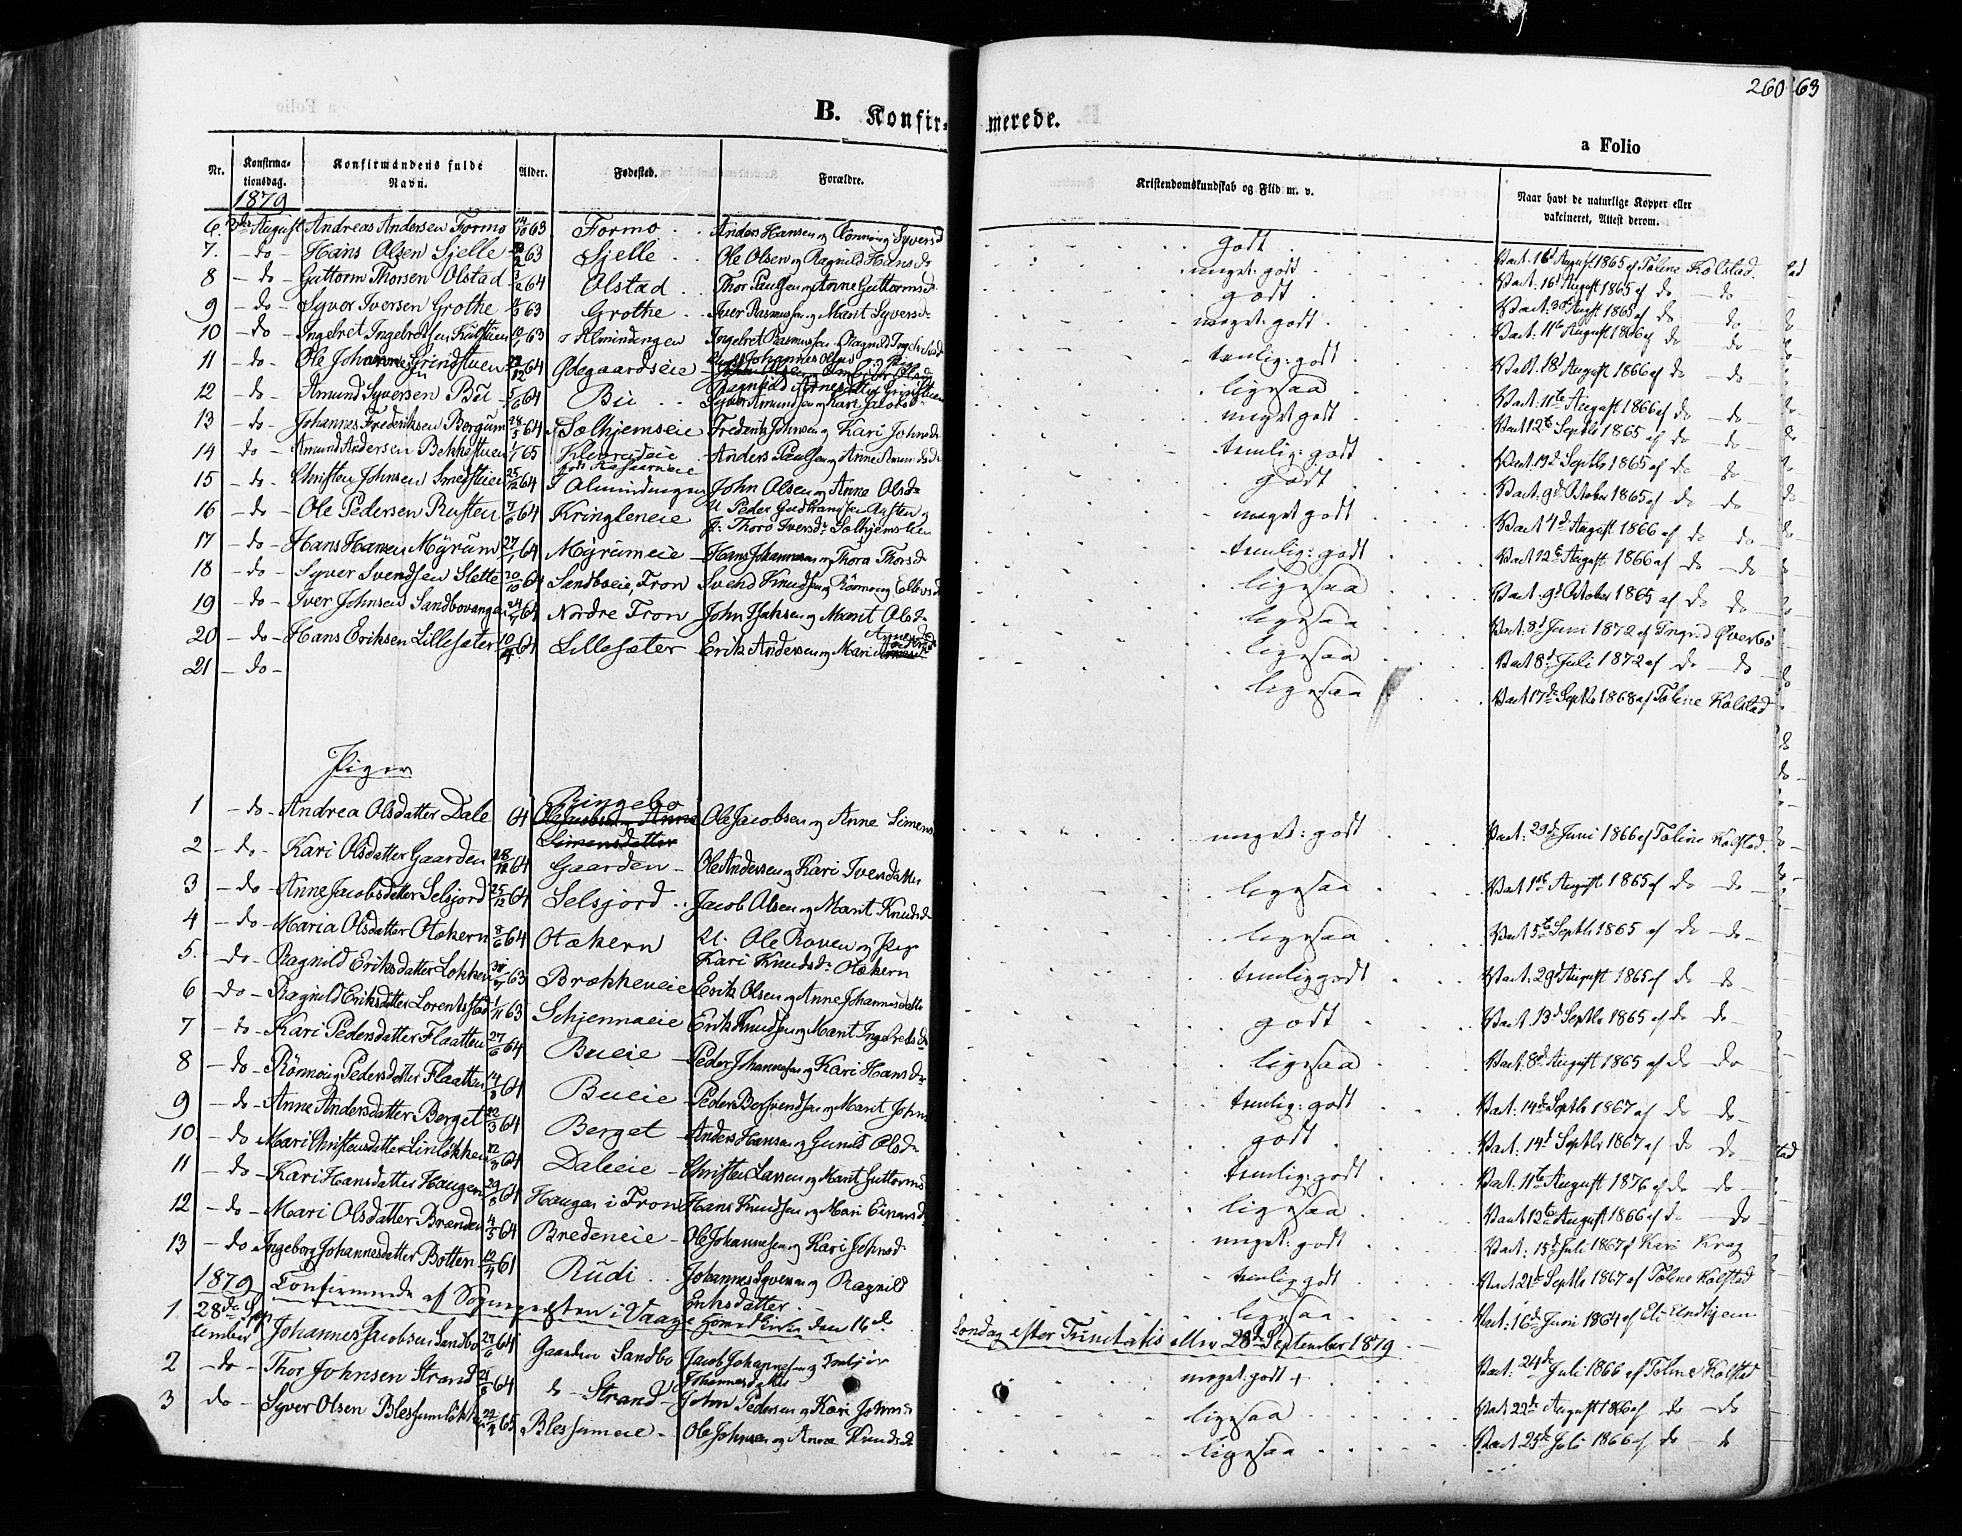 260 63
B. Konfir- merede.
a Folio
Nr. Konfirmationsdag. Konfirmandens fulde Navn. Alder. Fødested. Forældre. Kristendomskundskab og Flid m. v. Naar havt de naturlige Kopper eller vakcineret, Attest derom.
1879
6. August Andreas Andersen Formo 14/10 63 Formo Anders Hansen og Rønnoug Syversd godt Vact. 16d August 1865 af Tolene Kolstad
7. do Hans Olsen Sjelle 63 Sjelle Ole Olsen og Ragnild Hansd meget godt Vact. 16d August 1865 af do do
8 do Guttorm Thorsen Olstad 64 Olstad Thor Paulsen og Anne Guttormsd godt Vact. 30t August 1865 af do do
9 do Syver Iversen Grothe 63 Grothe Iver Rasmussen og Marit Syversd meget godt Vact. 11te August 1866 af do do
10 do Ingebret Ingebretsen 63 Almindingen Ingebret Rasmussen Ragnild Ingebretsd temlig: godt Vact. 18d August 1866 af do do
11 do Ole Johannesen Grindstuen 64 Ødegaardseie Johannes Olsen Ragnhild Arnesdatter Grindstuen ligesaa Vact. 11te August 1866 af do do
12 do Amund Syversen Bü 64 Bü Syver Amundsen og Kari Jacobsd meget godt Vact 12te Septbr 1865 af do do
13 do Johannes Frederiksen Borgum 64 Solhjemseie Frederik Johnsen og Kari Johnsd temlig: godt Vact. 19d Septbr 1865 af do do
14 do Amund Andersen Bekkestuen 65 Kleivrudeie Anders Paulsen og Anne Amundsd godt Vact. 9d October 1865 af do do
15 do Christen Johnsen Smedstuen 25/12 64 Almindingen John Olsen og Anne Olsd meget godt Vact 4d August 1866 af do do
16 do Ole Pedersen Rusten 7/6 64 Kringleneie U. Peder Gudbrandsen Rusten og P: Thora Iversd: Solhjemslien temlig: godt Vact 12te August 1866 af do do
17 do Hans Hansen Myrum 27/1 64 Myrumeie Hans Johannesen og Thora Thorsd ligesaa Vact. 9d October 1865 af do do
18 do Syver Svendsen Slette 20/10 64 Sandboeie, Fron Svend Knudsen og Rønnoug ligesaa Vact. 8d Juni 1872 af Ingrid Øverbø
19 do Iver Johnsen Sandbovangen 64 Nordre Fron John Isaksen og Marit Olsd ligesaa Vact 8d Juli 1872 af do do
20 do Hans Eriksen Lillesæter 10/4 64 Lillesæter Erik Andersen og Mari ligesaa Vact 17de Septbr 1868 af Tolene Kolstad
21 do
Piger
1 do Andrea Olsdatter Dale 64 Ringebo Ole Jacobsen og Anne Simensd meget: godt Vact. 29d Juni 1866 af Toline Kolstad.
Simensdatter
2 do Kari Olsdatter Gaarden 28/12 64 Gaarden Ole Andersen og Kari Iversdatter ligesaa Vact 1ste August 1865 af do do
3 do Anne Jacobsdatter Selsjord 25/12 64 Selsjord Jacob Olsen og Marit Knudsd ligesaa Vact 5te Septbr 1865 af do do
4 do Maria Olsdatter Otækern 8/6 64 Otækern U. Ole Roven og Pig Kari Knudsd: Otækern temlig godt Vact: 29d August 1865 af do do
5. do Ragnild Eriksdatter Løkken 63 Brækkeneie Erik Olsen og Anne Johannesdatter godt Vact. 13d Septbr 1865 af do do
6 do Ragnild Eriksdatter Lorentsstad 1/11 63 Schjennaeie Erik Knudsen og Marit Ingebretsd ligesaa Vact: 8de August 1865 af do do
7 do Kari Pedersdatter Flaatten 27/6 64 Bueie Peder Johannesen og Kari Hansd temlig: godt Vact: 14de Septbr 1867 af do do
8 do Rønnoug Pedersdatter Flaatten 64 Bueie Peder og Marit Johnsd godt Vact: 14d Septbr 1867 af do do
9 do Anne Andersdatter Berget 22/3 64 Berget Anders Hansen og Gunild Olsd temlig: godt Vact: 11te August 1876 af do do
10. do Mari Christensdatter Linløkken 64 Daleeie Christen Larsen og Marit Guttormsd ligesaa Vact 12te August 1866 af do do
11 do Kari Hansdatter Haugen 29/8 64 Haugen i Fron Hans Knudsen og Mari Einarsd meget: godt Vact. 15de Juli 1867 af Kari Krag
12 do Mari Olsdatter Brænden 4/5 64 Bredeneie Ole Johannesen og Kari Johnsd temlig godt Vact 21d Septbr 1867 af Tolene Kolstad
13 do Ingeborg Johannesdatter Botten 12/4 61 Rudi Johannes Syversen og Ragnild Eriksdatter ligesaa Vact: 16d Juni 1864 af Eli Andhjem
1879 Confirmerede af Sognepresten i Vaage den 16de Søndag efter Trinitatis eller 28de September 1879
1 28de September Johannes Jacobsen Sandbo 64 Gaarden Sandbo Jacob Johannesen og Johannesdatter meget godt + Vact: 24de Juli 1866 af Toline Kolstad
2 do Thor Johnsen Strand 64 do Strand John Pedersen og Kari Johnsd ligesaa Vact 22de August 1866 af do do
3 do Syver Olsen Blessumløkken 65 Blessumeie Ole Johnsen og Anne Knudsd ligesaa Vact 25de Juli 1866 af do do